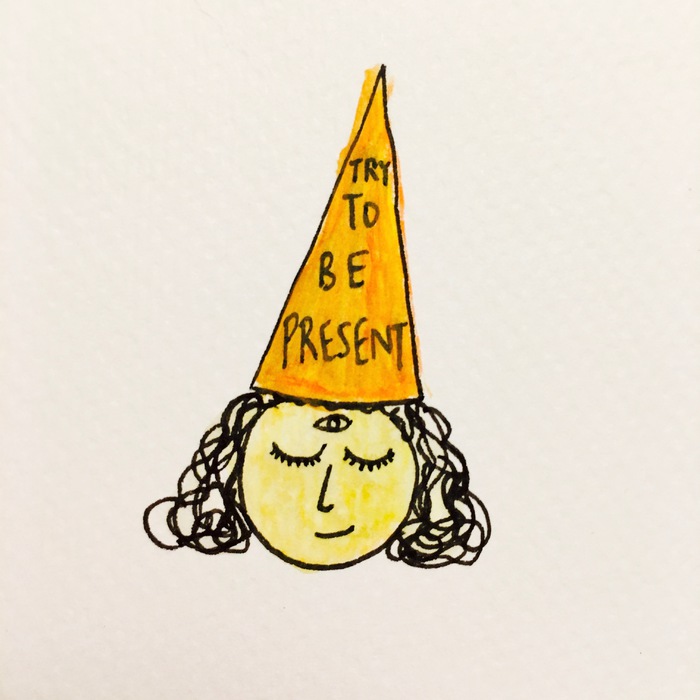 TRY
TO
BE
PRESENT